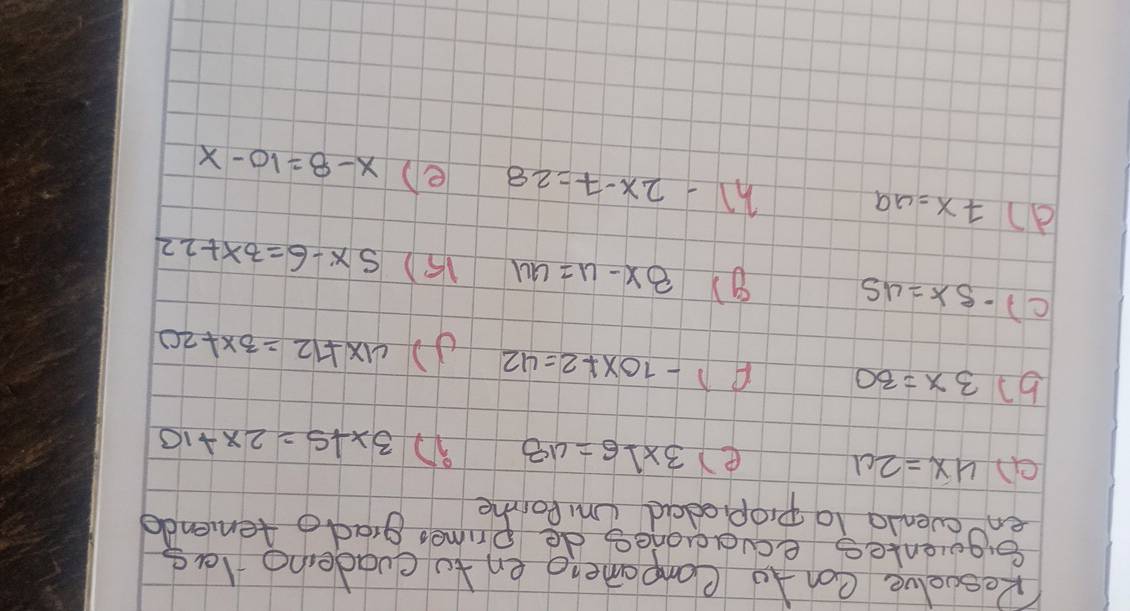 Resuelve con tu compañero en tu cuaderno las
siguientes ecuaciones de primer grado teniendo
en cuenta la propiedad uniforme
a) 4x=24 e) 3x+6=48 i) 3x+5=2x+10
b) 3x=30 f) -10x+2=42 j) 4x+12=3x+20
c) -5x=45 g) 8x-4=44 k) 5x-6=3x+22
d) 7x=49 h) -2x-7=28 e) x-8=10-x